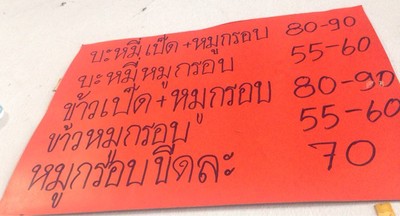 บะหมี่เป็ด+หมูกรอบ 80-90
บะหมี่หมูกรอบ 55-60
ข้าวเป็ด+หมูกรอบ 80-90
ข้าวหมูกรอบ 55-60
หมูกรอบขีดละ 70